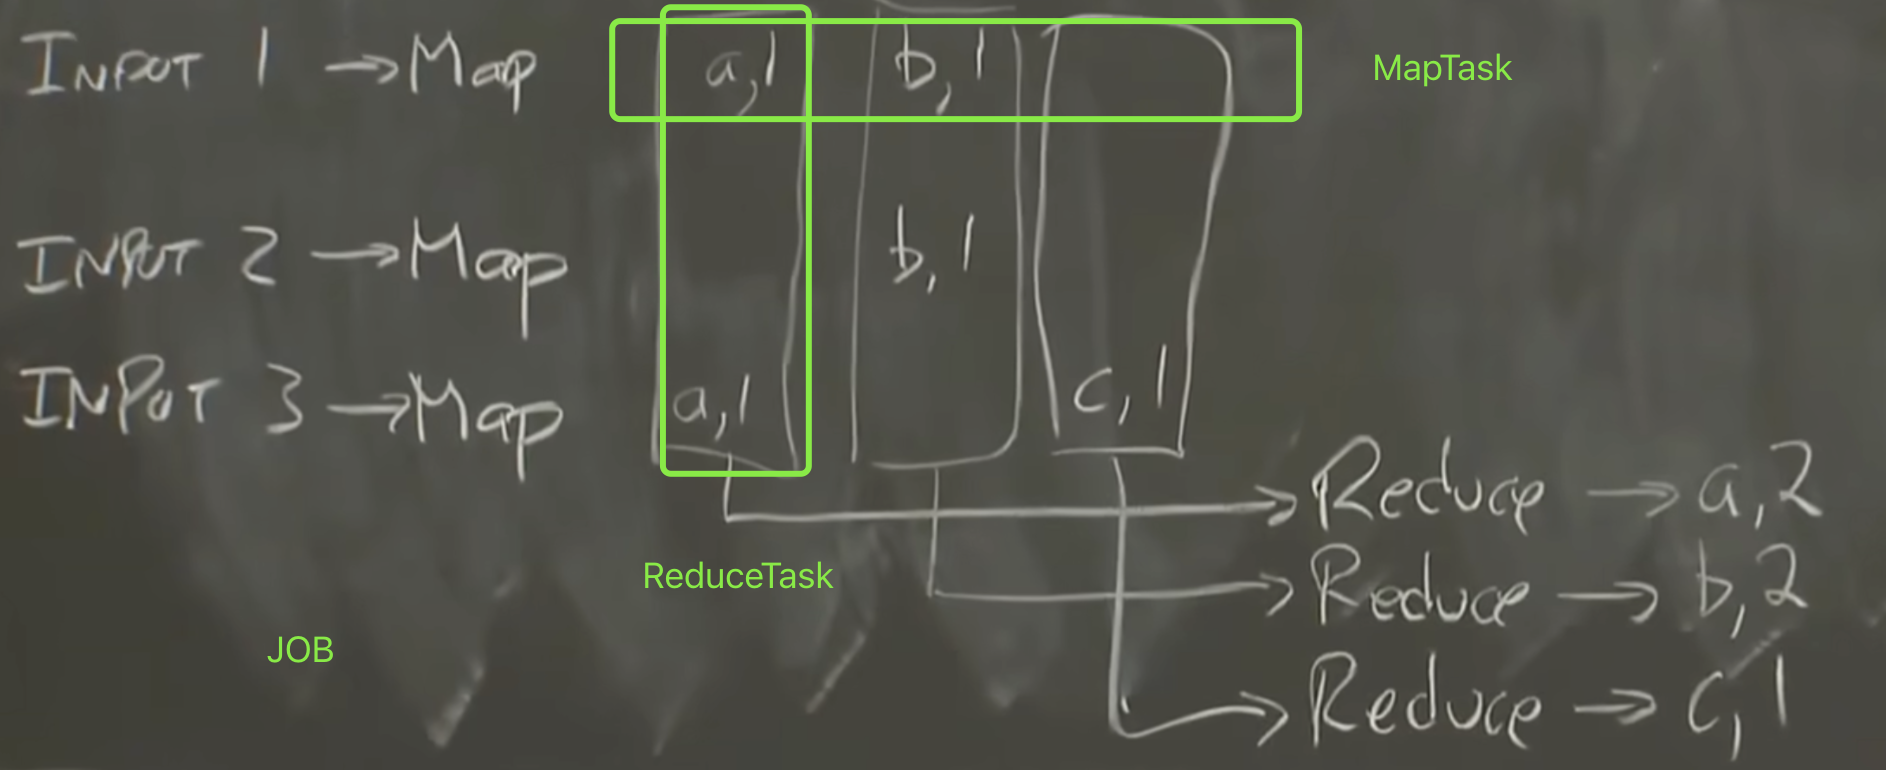 INPUT 1 → Map a,1 b,1 MapTask
INPUT 2 → Map b,1
INPUT 3 → Map a,1 c,1
Reduce → a,2
ReduceTask
Reduce → b,2
JOB
Reduce → c,1